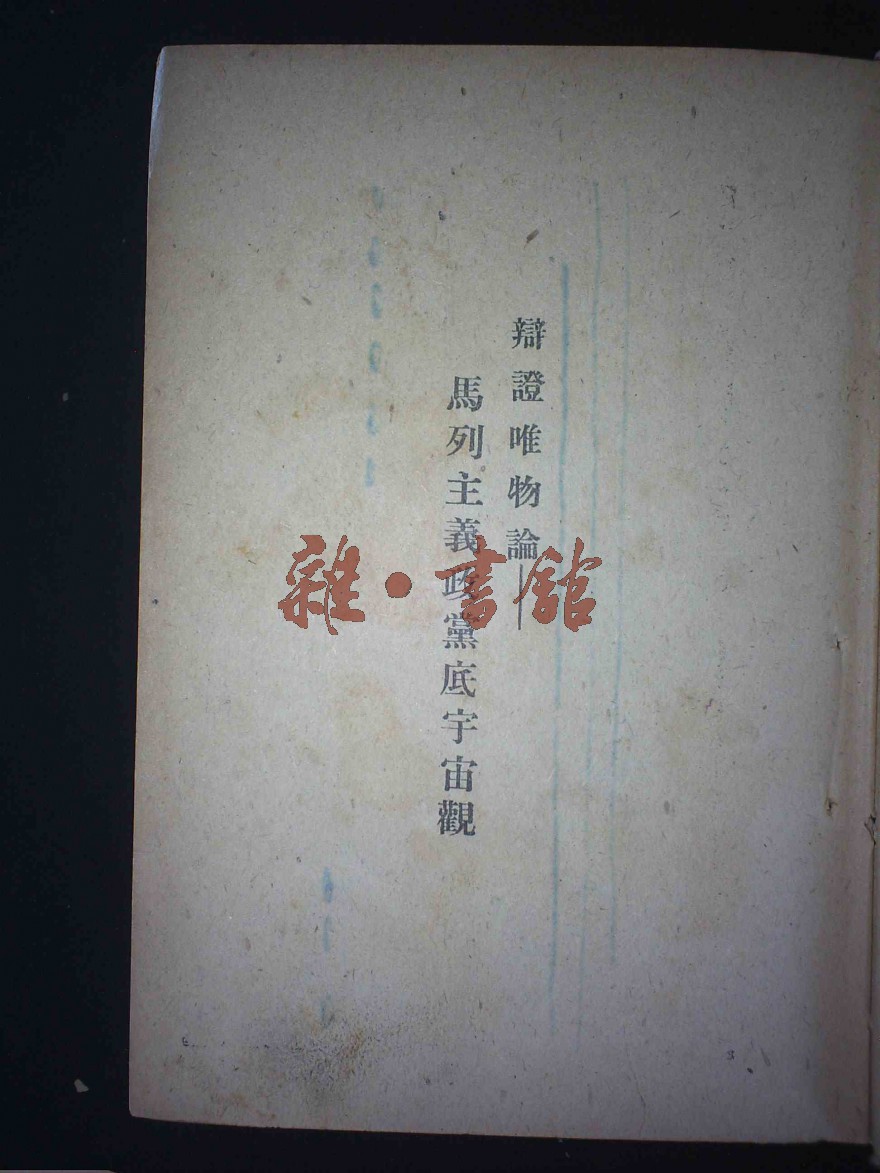 辯證唯物論——
馬列主義政黨底宇宙觀
雜·書館